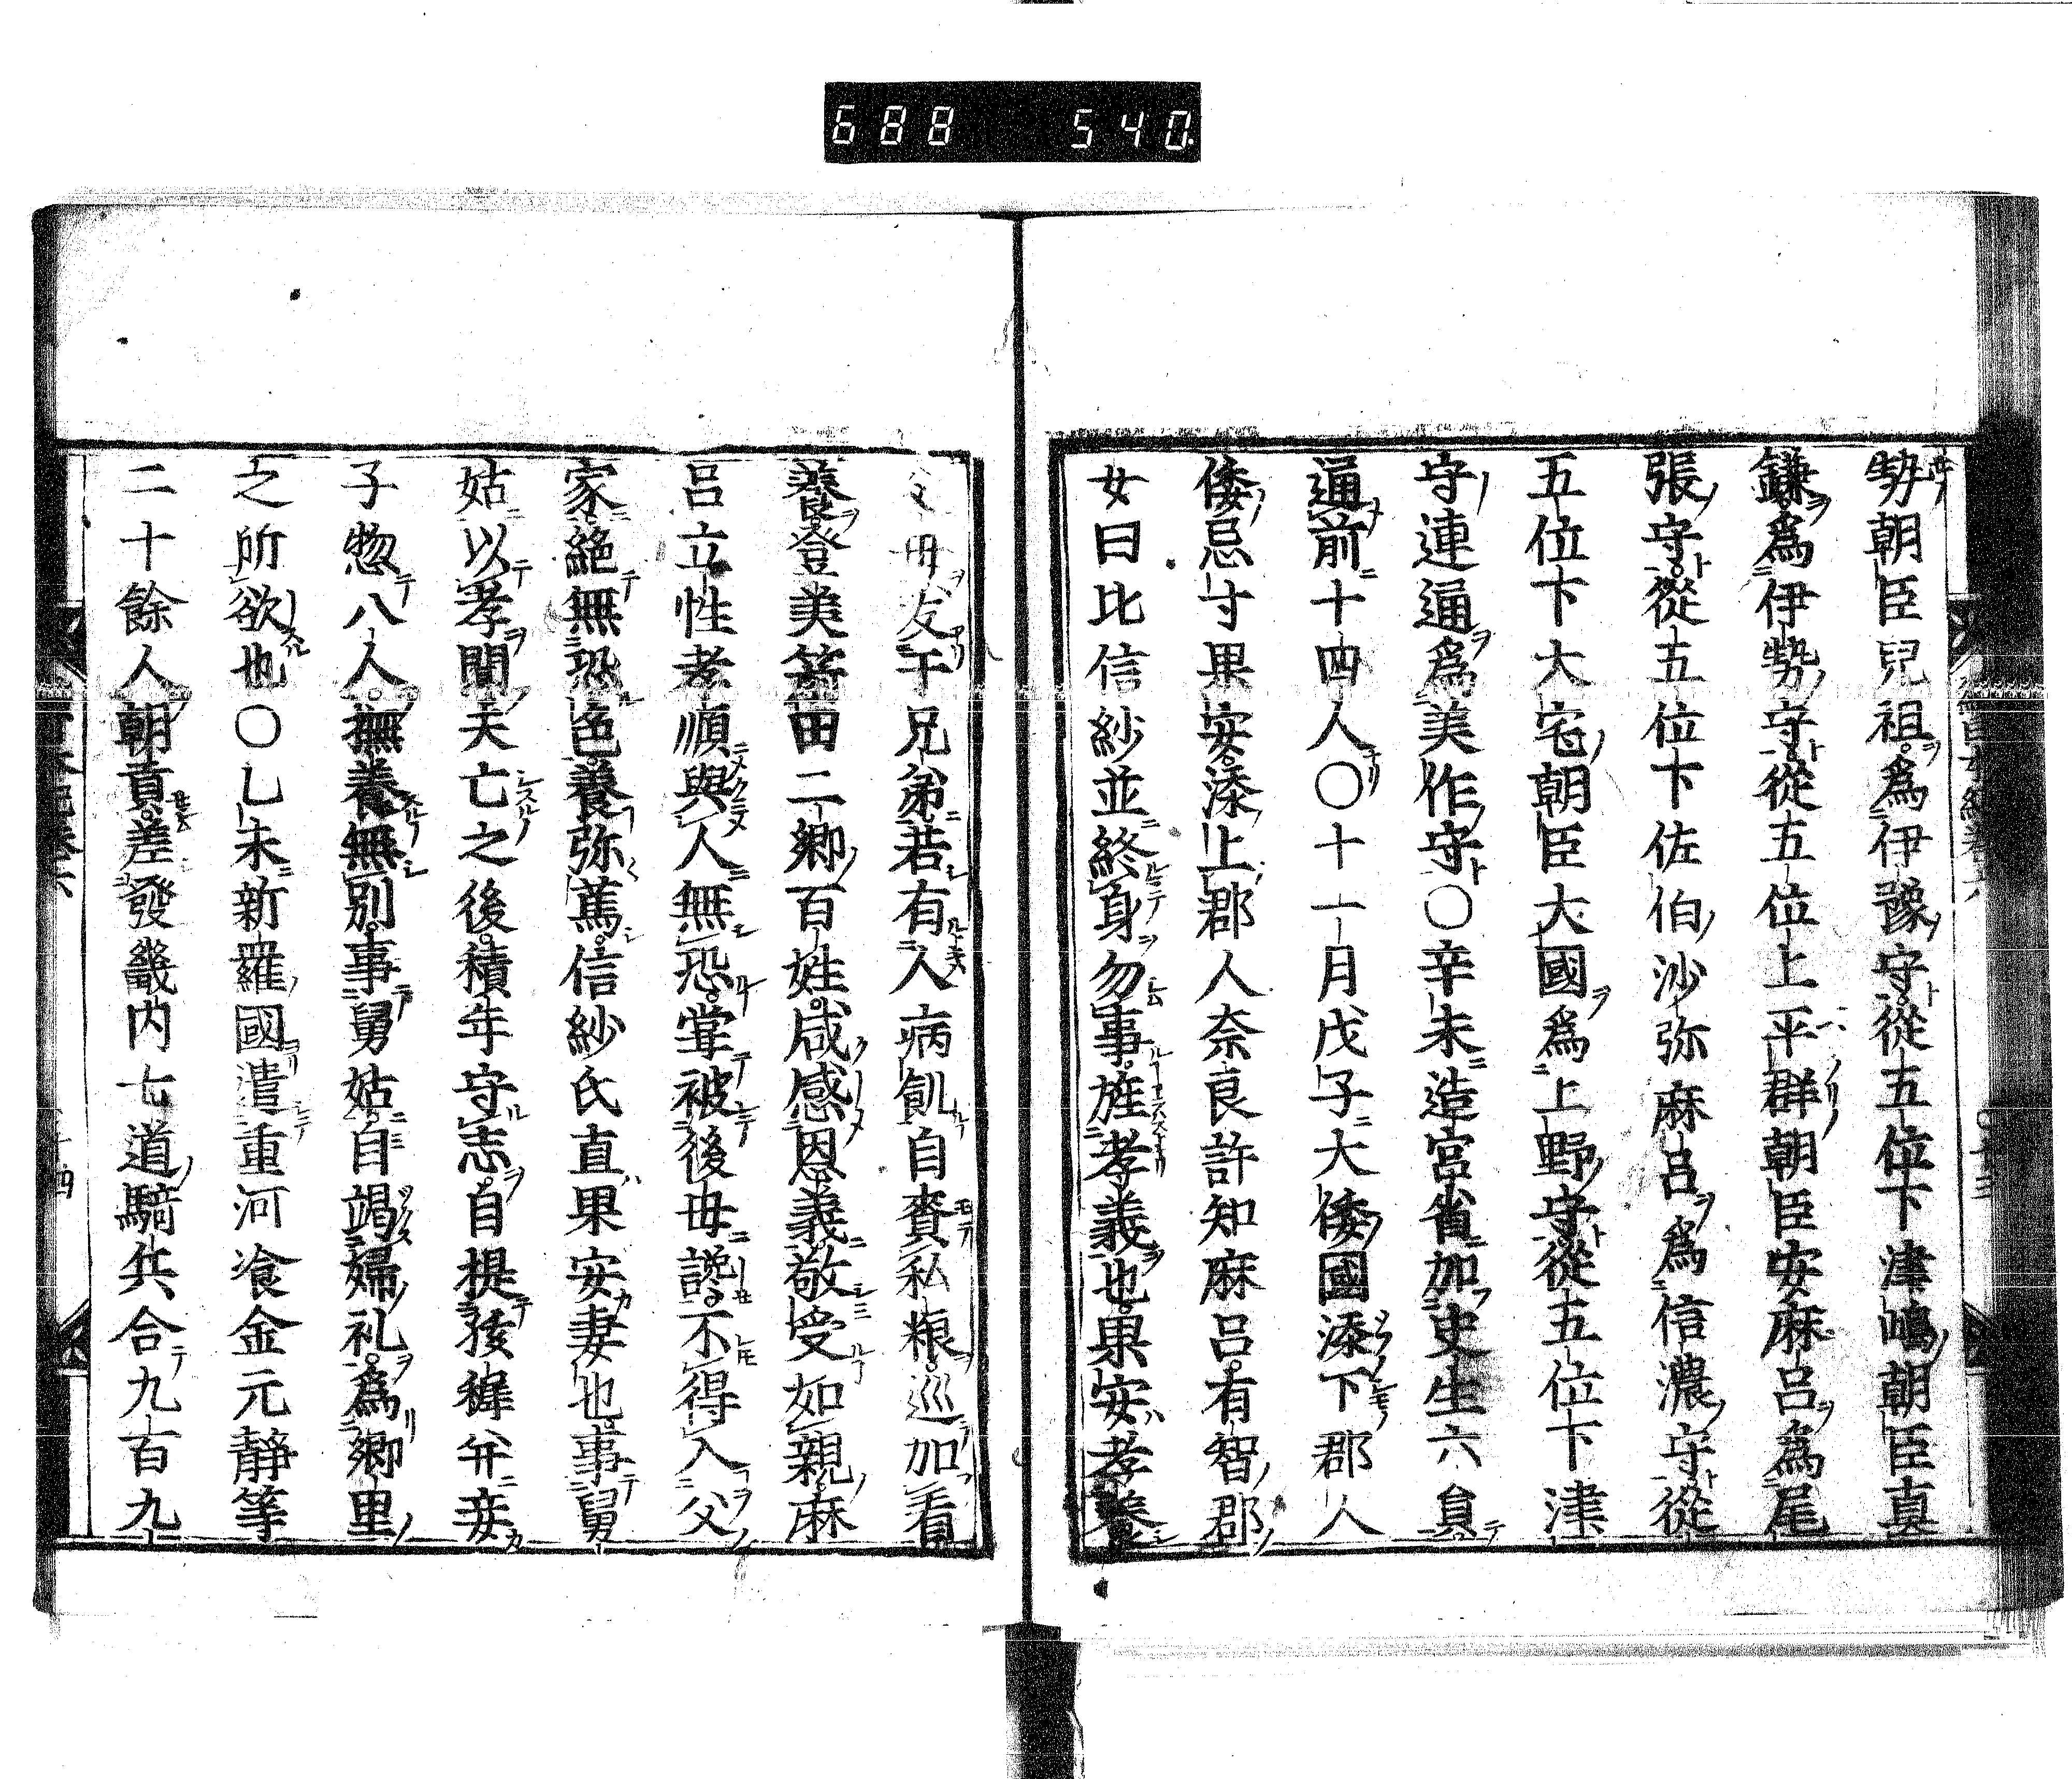 688 540
勢朝臣兒祖爲伊豫守從五位下津嶋朝臣真
鎌爲伊勢守從五位上平群朝臣安麻呂爲尾
張守從五位下佐伯沙弥麻呂爲信濃守從
五位下大宅朝臣大國爲上野守從五位下津
守連通爲美作守〇辛未造宮省加史生六員
通前十四人〇十一月戊子大倭國添下郡人
倭忌寸果安添上郡人奈良許知麻呂有智郡
女曰比信紗並終身勿事旌孝義也果安孝養
父母友于兄弟若有人病飢自賚私粮巡加看
養登美箭田二郷百姓咸感恩義敬受如親麻
呂立性孝順與人無恐甞被後母讒不得入父
家絶無恐色養弥篤信紗氏直果安妻也事舅
姑以孝聞夫亡之後積年守志自提孩穉并妾
子惣八人撫養無別事舅姑自竭婦礼爲郷里
之所欲也〇乚未新羅國遣重河飡金元静等
二十餘人朝貢差發畿内七道騎兵合九百九